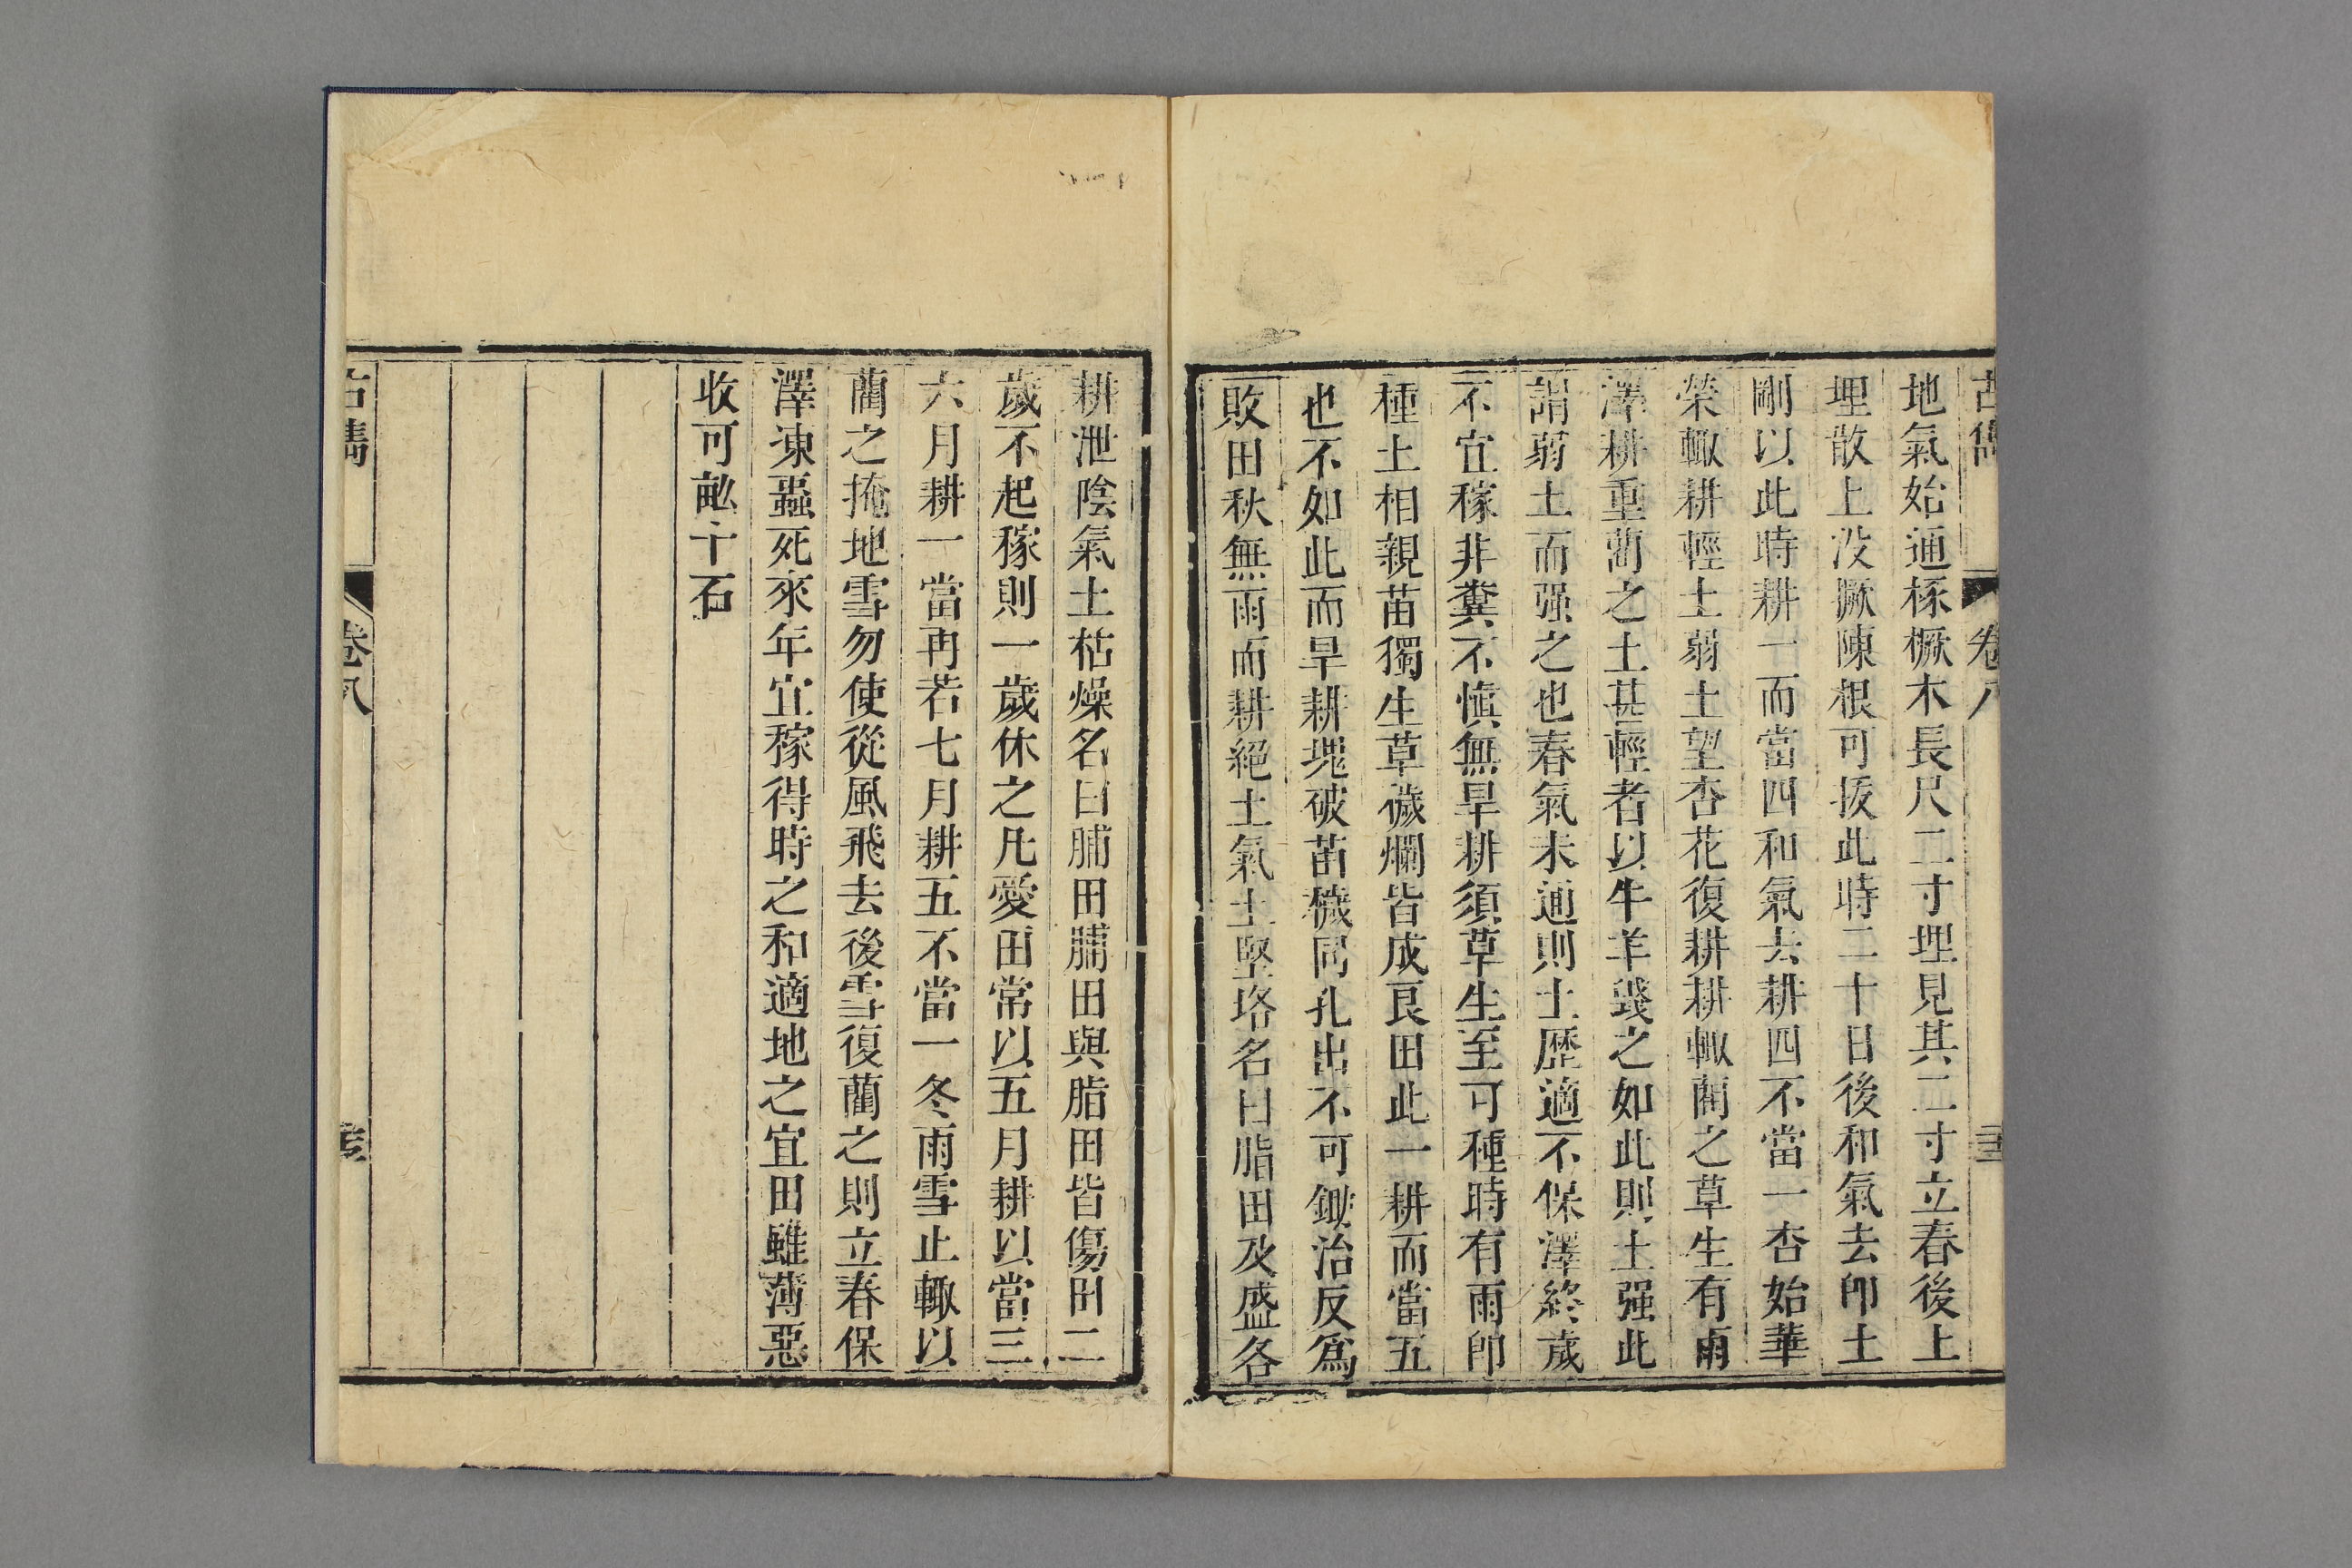 古雋 卷八
地氣始通椓橛木長尺二寸埋見其二寸立春後土
埋散上没橛陳根可拔此時二十日後和氣去卽土
剛以此時耕一而當四和氣去耕四不當一杏始華
榮輙耕輕土弱土望杏花復耕耕輙藺之草生有雨
澤耕重藺之土甚輕者以牛羊踐之如此則土强此
謂弱土而强之也春氣未通則土歷適不保澤終歲
不宜稼非糞不慎無旱耕須草生至可種時有雨卽
種土相親苗獨生草穢爛皆成良田此一耕而當五
也不如此而旱耕塊破苗穢同孔出不可鋤治反爲
敗田秋無雨而耕絕土氣土堅垎名曰脂田及盛冬
耕泄陰氣土枯燥名曰脯田脯田與脂田皆傷田二
歲不起稼則一歲休之凡愛田常以五月耕以當三
六月耕一當再若七月耕五不當一冬雨雪止輙以
藺之掩地雪勿使從風飛去後雪復藺之則立春保
澤凍蟲死來年宜稼得時之和適地之宜田雖薄惡
收可畝十石
古雋 卷八